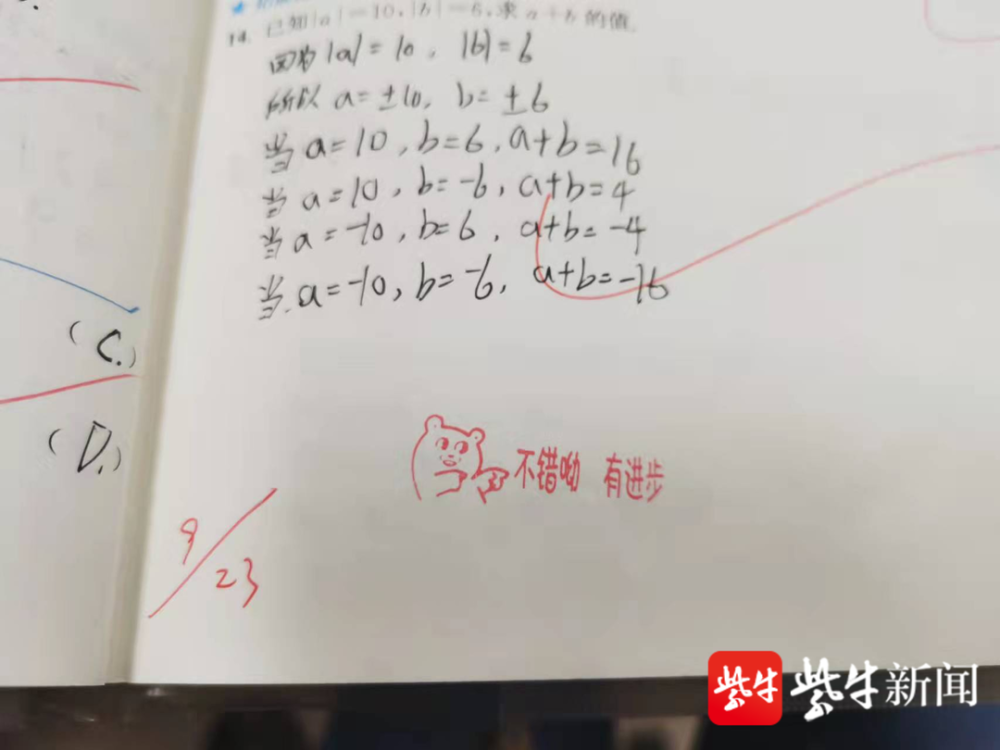 14. 已知|a|=10,|b|=6,求a+b的值.
因为|a|=10,|b|=6
所以 a=±10, b=±6
当a=10,b=6,a+b=16
当a=10,b=-6,a+b=4
当a=-10,b=6,a+b=-4
当.a=-10,b=-6,a+b=-16
(C.)
(D.)
不错呦 有进步
9/23
紫牛 紫牛新闻